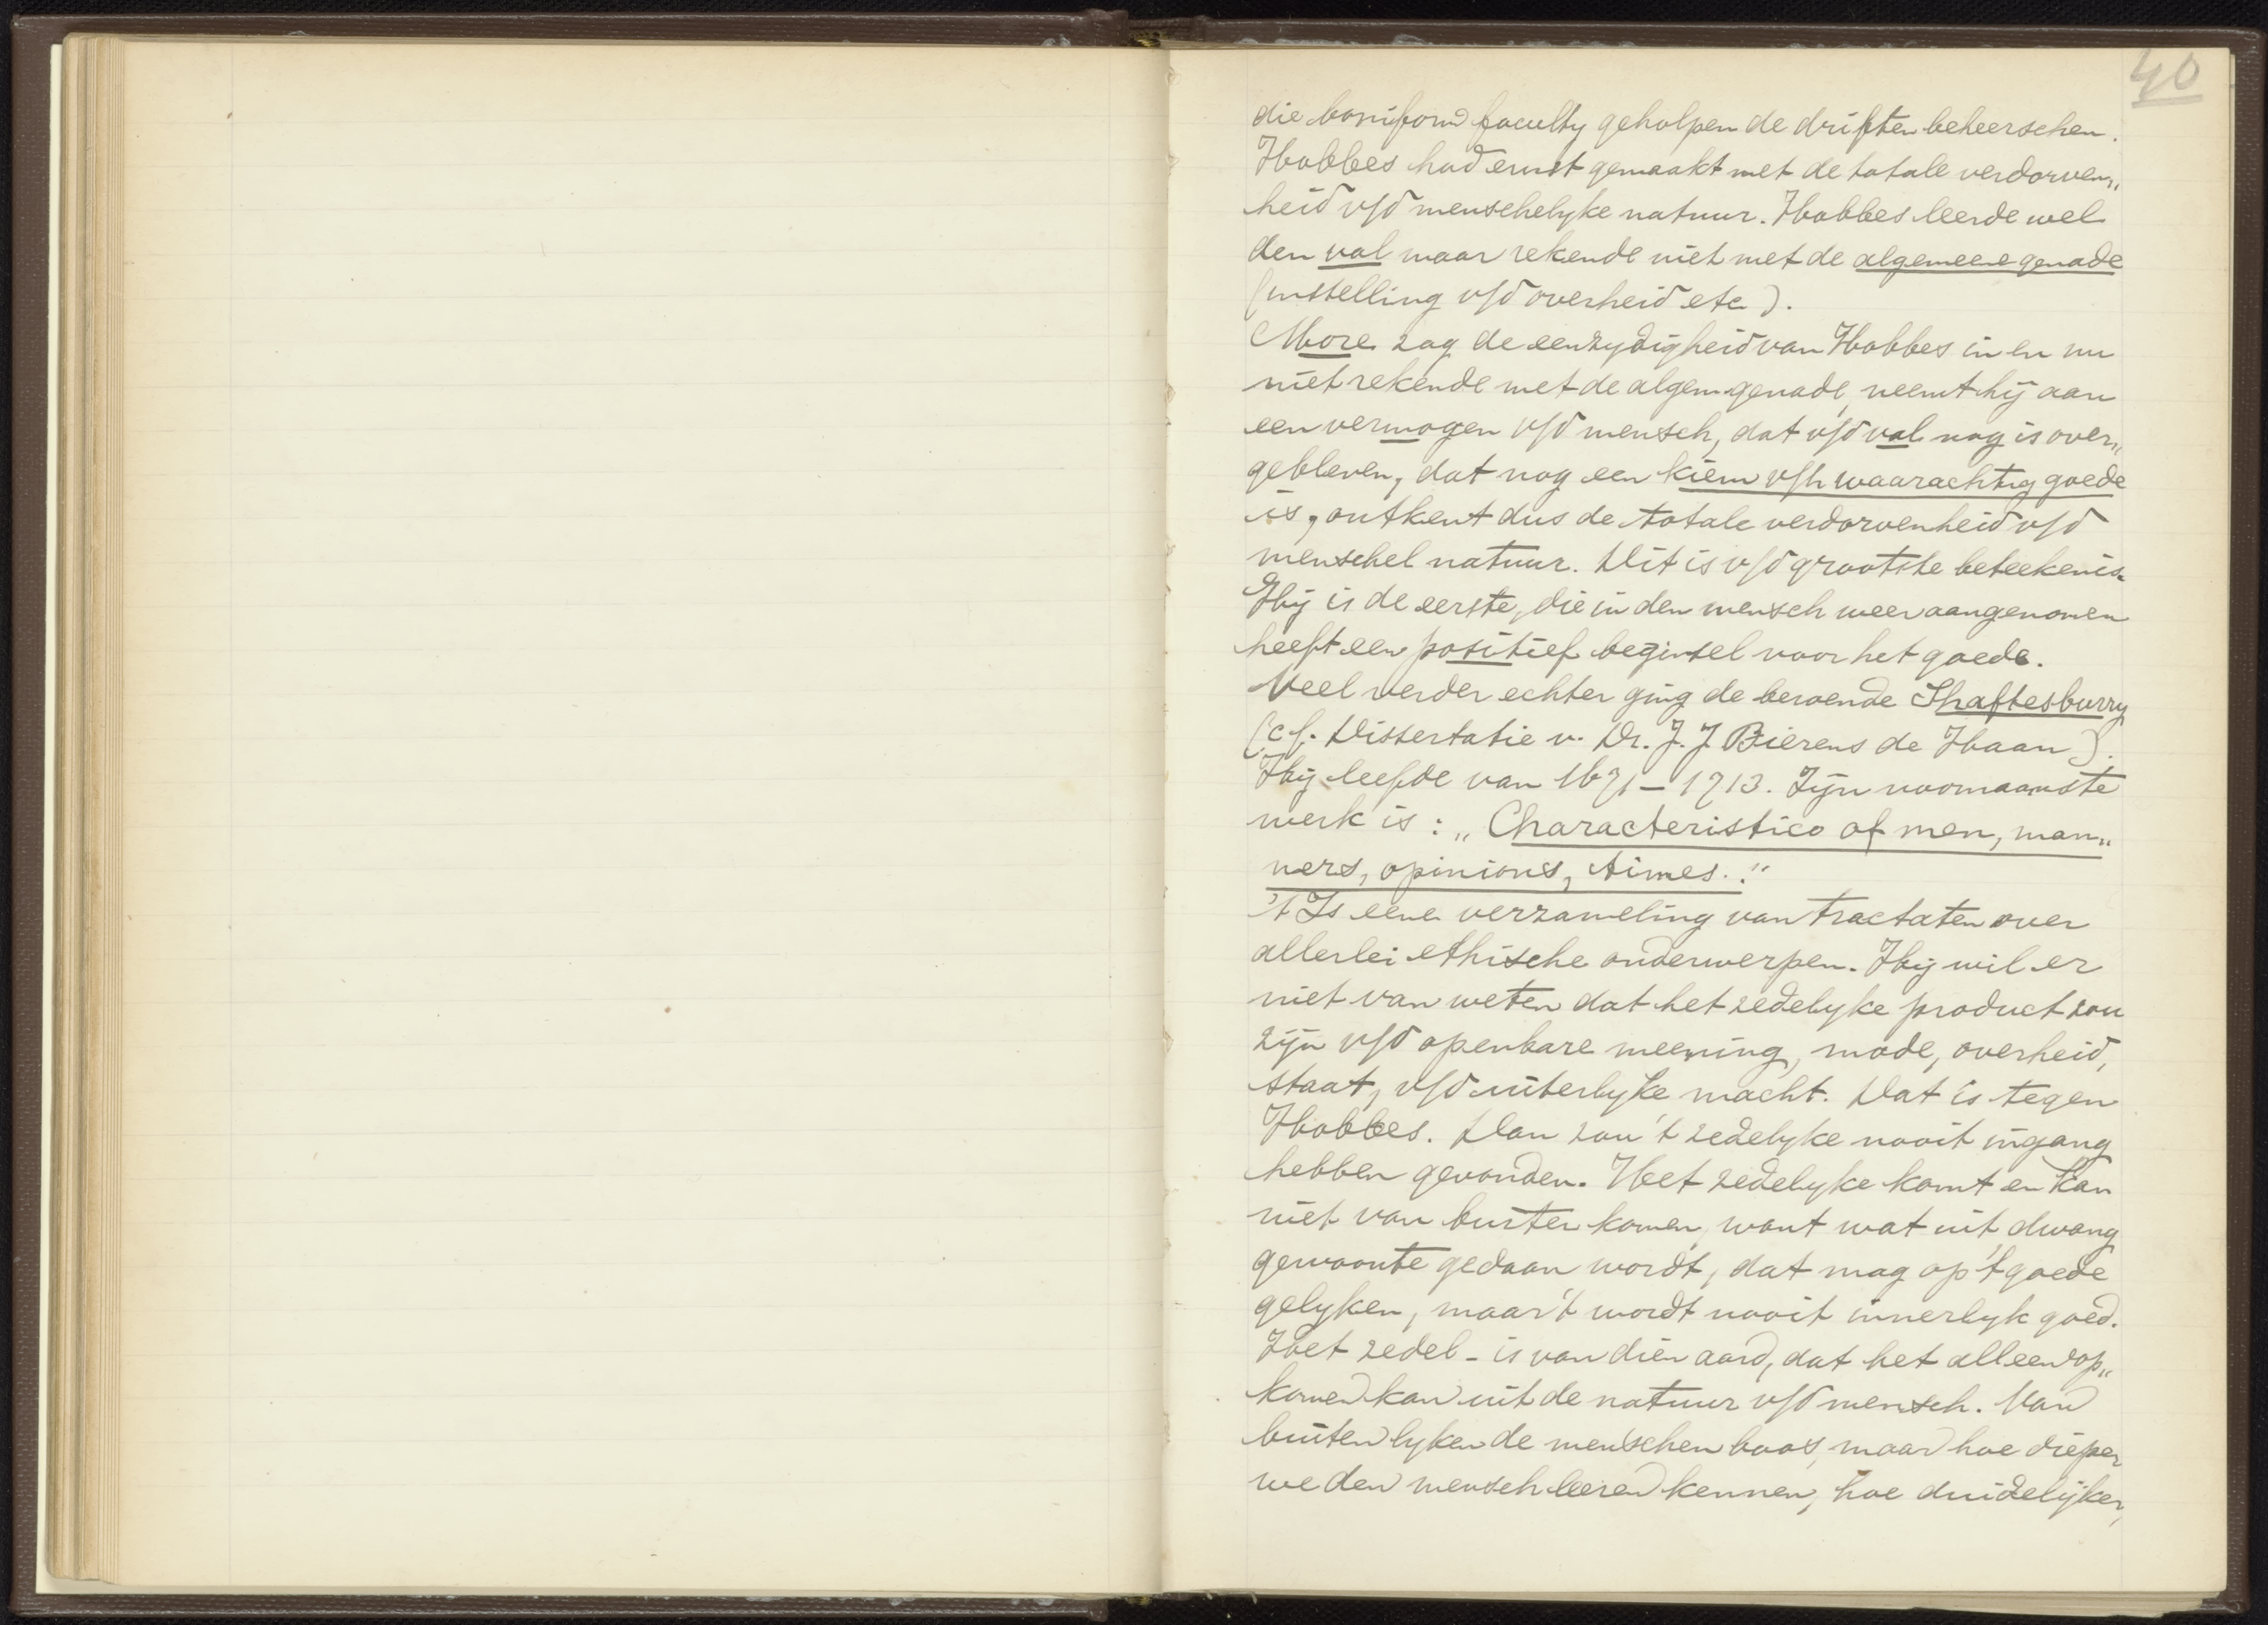 40
die boniform faculty geholpen de driften beheerschen.
Hobbes had ernst gemaakt met de totale verdorven„
heid v/d menschelyke natuur. Hobbes leerde wel
den val maar rekende niet met de algemeene genade
(instelling v/d overheid etc).
More zag de eenzydigheid van Hobbes in en nu
niet rekende met de algem. genade, neemt hij aan
een vermogen v/d mensch, dat v/d val nog is over„
gebleven, dat nog een kiem v/h waarachtig goede
is, ontkent dus de totale verdorvenheid v/d
menschel natuur. Dit is v/d grootste beteekenis.
Hij is de eerste, die in den mensch weer aangenomen
heeft een positief beginsel voor het goede.
Veel verder echter ging de beroemde Shaftesburry
(cf. Dissertatie v. Dr. J. J Bierens de Haan).
Hij leefde van 1671 – 1713. Zijn voornaamste
werk is: „Characteristics of men, man„
ners, opinions, times."
't Is eene verzameling van tractaten over
allerlei ethische onderwerpen. Hij wil er
niet van weten dat het zedelyke product zou
zijn v/d openbare meening, mode, overheid,
staat, v/d uiterlyke macht. Dat is tegen
Hobbes. Dan zou 't zedelyke nooit ingang
hebben gevonden. Het zedelyke komt en kan
niet van buiten komen, want wat uit dwang
gewoonte gedaan wordt, dat mag op 't goede
gelyken, maar 't wordt nooit innerlyk goed.
Het zedel – is van dien aard, dat het alleen op„
komen kan uit de natuur v/d mensch. Van
buiten lyken de menschen boos, maar hoe dieper
we den mensch leeren kennen, hoe duidelijker,